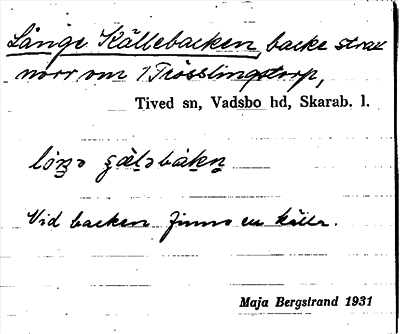 Långe Källebacken, backe strax
norr om 1 Trösslingstorp,
Tived sn, Vadsbo hd, Skarab. l.
Vid backen finns en källa.
Maja Bergstrand 1931